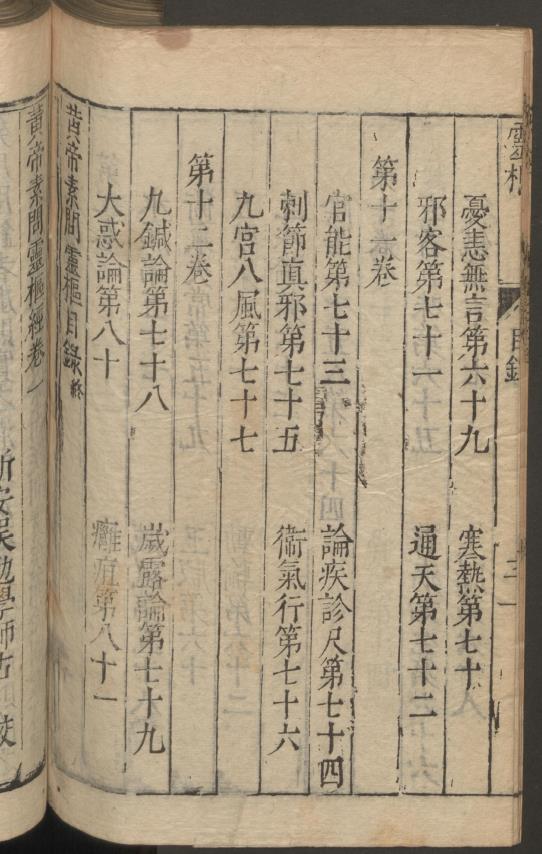 目錄
憂恚無言第六十九　寒熱第七十
邪客第七十一　通天第七十二
第十一卷
官能第七十三　論疾診尺第七十四
刺節真邪第七十五　衛氣行第七十六
九宮八風第七十七
第十二卷
九鍼論第七十八　歲露論第七十九
大惑論第八十　癰疽第八十一
黃帝素問靈樞目錄終
黃帝素問靈樞經卷一
新安吳勉學師古校